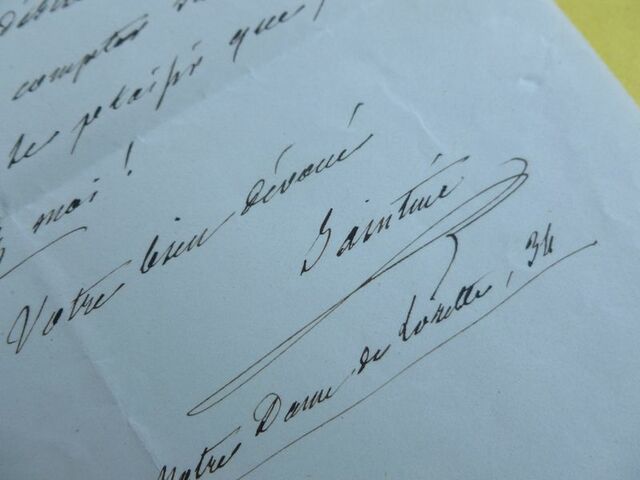 compter
le plaisir que
moi !
Votre bien dévoué
Saintine
Notre Dame de Lorette, 34